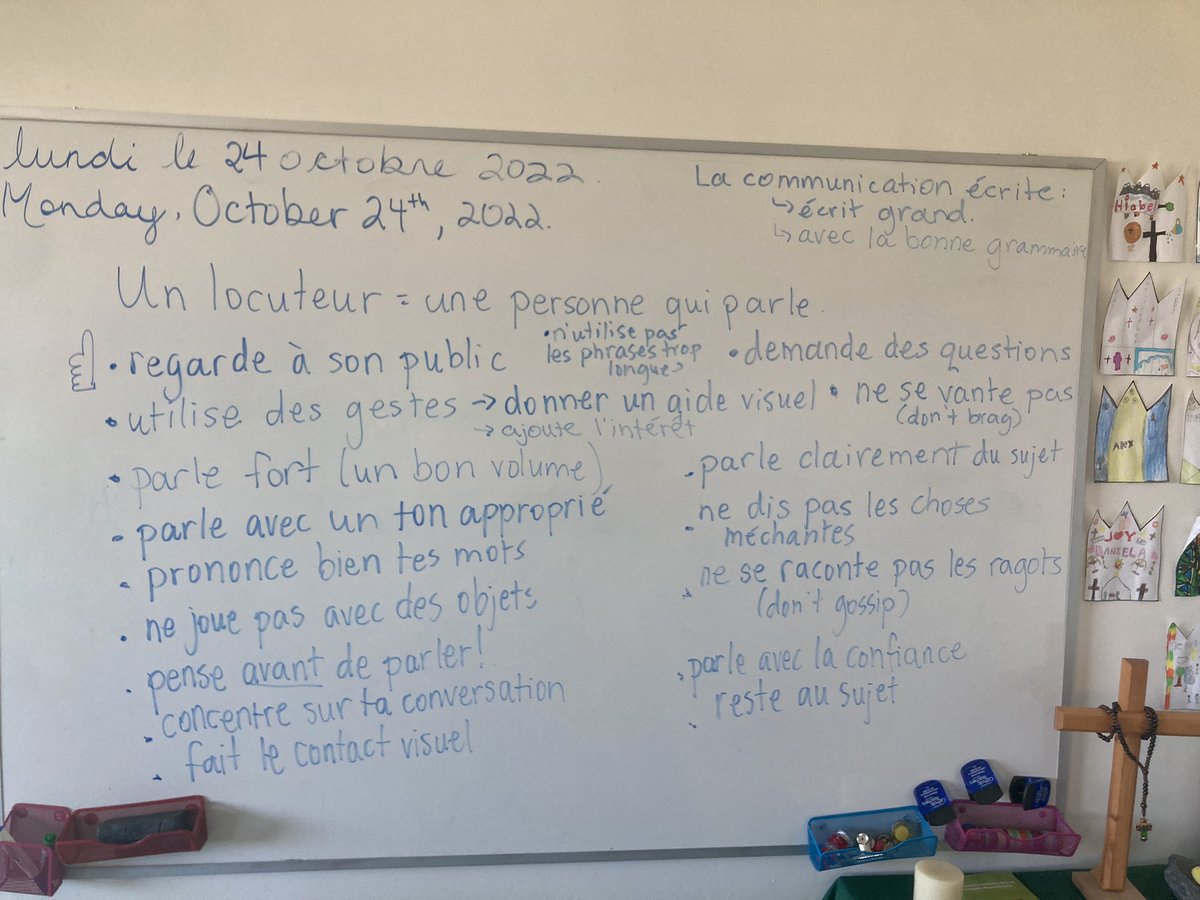 lundi le 24 octobre 2022.
Monday, October 24th, 2022.
La communication écrite:
↳ écrit grand.
↳ avec la bonne grammaire
Un locuteur = une personne qui parle.
• regarde à son public
• utilise des gestes → donner un aide visuel
→ ajoute l'intérêt
• parle fort (un bon volume)
• parle avec un ton approprié
• prononce bien tes mots
• ne joue pas avec des objets
• pense avant de parler!
• concentre sur ta conversation
• fait le contact visuel
• n'utilise pas
les phrases trop
longues
• demande des questions
• ne se vante pas
(don't brag)
• parle clairement du sujet
• ne dis pas les choses
méchantes
• ne se raconte pas les ragots
(don't gossip)
• parle avec la confiance
• reste au sujet
Hiabel
ALEX
JOY